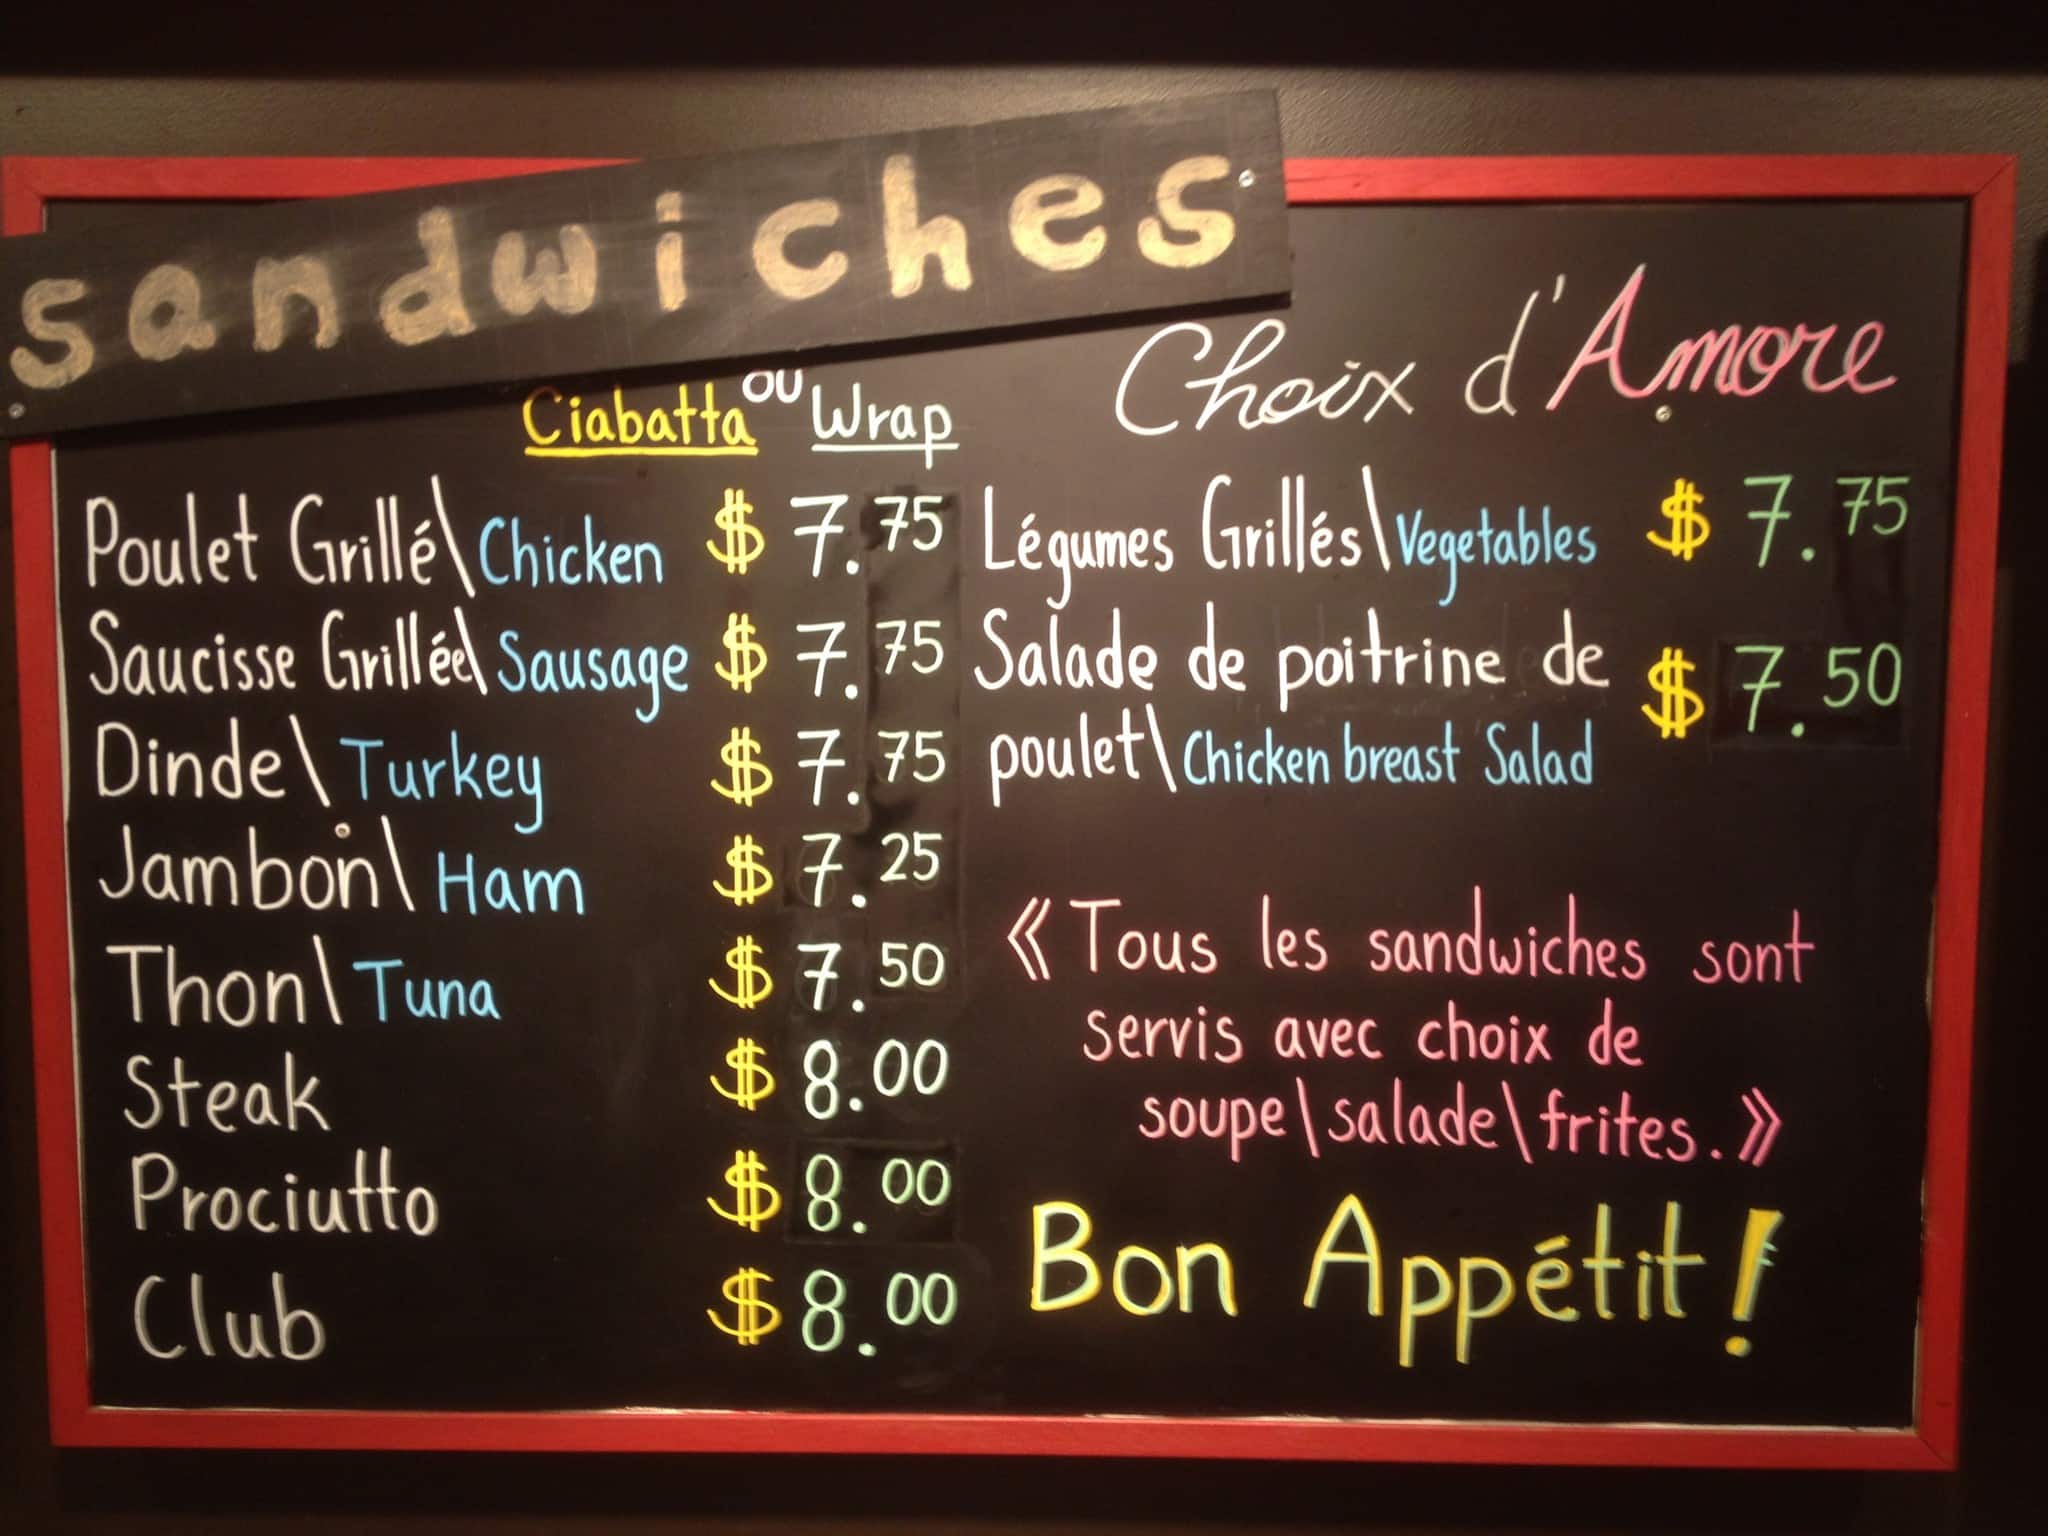 sandwiches
Ciabatta ou Wrap
Poulet Grillé\Chicken $ 7.75
Saucisse Grillée\Sausage $ 7.75
Dinde\Turkey $ 7.75
Jambon\Ham $ 7.25
Thon\Tuna $ 7.50
Steak $ 8.00
Prociutto $ 8.00
Club $ 8.00
Choix d'Amore
Légumes Grillés\Vegetables $ 7.75
Salade de poitrine de $ 7.50
poulet\Chicken breast Salad
《Tous les sandwiches sont
servis avec choix de
soupe\salade\frites.》
Bon Appétit!